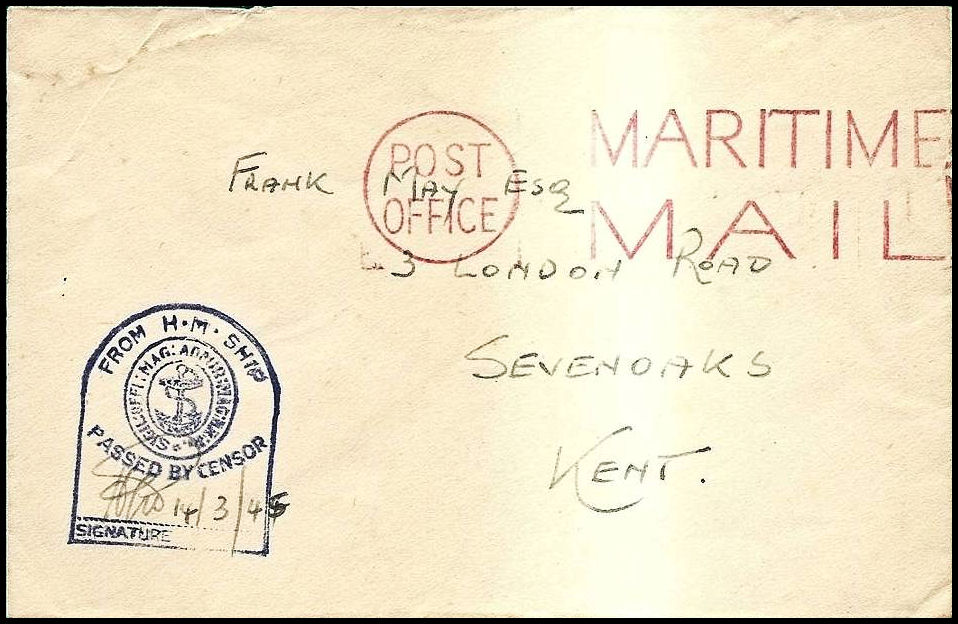 POST
OFFICE
MARITIME
MAIL
FRANK MAY ESQ
3 LONDON ROAD
SEVENOAKS
KENT.
FROM H·M· SHIP
PASSED BY CENSOR
14/3/45
SIGNATURE